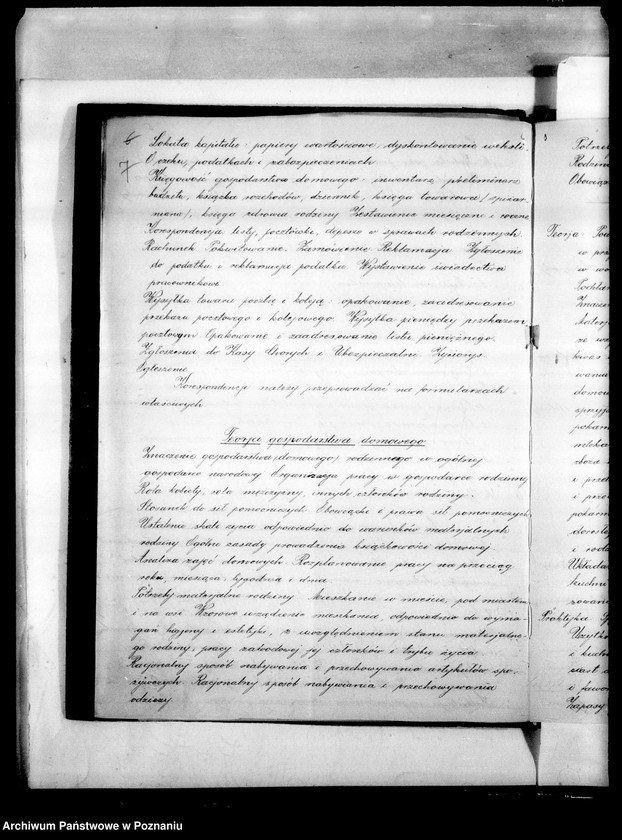 6
7
Lokata kapitału - papiery wartościowe, dyskontowanie weksli.
O czeku, podatkach i zabezpieczeniach
Księgowość gospodarstwa domowego - inwentarz, preliminarz
budżetu, książka rozchodów, dziennik, księga towarowa /spiżar-
niana/, księga zdrowia rodziny Zestawienie miesięczne i roczne
Korespondencja listy, pocztówki, depesze w sprawach rodzinnych.
Rachunek Pokwitowanie. Zamówienie Reklamacja Zgłoszenie
do podatku i reklamacje podatku Wystawienie świadectwa
pracownikowi
Wysyłka towaru pocztą i koleją - opakowanie, zaadresowanie
przekazu pocztowego i kolejowego Wysyłka pieniędzy przekazem
pocztowym Opakowanie i zaadresowanie listu pieniężnego.
Zgłoszenia do Kasy Chorych i Ubezpieczalni Życiorys.
Ogłoszenie
Korespondencje należy przeprowadzać na formularzach
właściwych
Teorja gospodarstwa domowego
Znaczenie gospodarstwa domowego, rodzinnego w ogólnej
gospodarce narodowej Organizacja pracy w gospodarce rodzinnej
Rola kobiety, rola mężczyzny, innych członków rodziny.
Stosunek do sił pomocniczych Obowiązki i prawa sił pomocniczych
Ustalenie skali życia odpowiednio do warunków materjalnych
rodziny Ogólne zasady prowadzenia książkowości domowej.
Analiza zajęć domowych Rozplanowanie pracy na przeciąg
roku, miesiąca, tygodnia i dnia
Potrzeby materjalne rodziny Mieszkanie w mieście, pod miastem
i na wsi Wzorowe urządzenie mieszkania, odpowiednio do wyma-
gań higjeny i estetyki, z uwzględnieniem stanu materjalne-
go rodziny, pracy zawodowej jej członków i trybu życia
Racjonalny sposób nabywania i przechowywania artykułów spo-
żywczych Racjonalny sposób nabywania i przechowywania
odzieży.
Potrzeb
Rodzin
Obowiąz
Teorja
w
Znaczen
ze
domow
mleka
zboża
i
i
i
Układa
Praktyka
Użytko
i
i
Zapasy
Archiwum Państwowe w Poznaniu